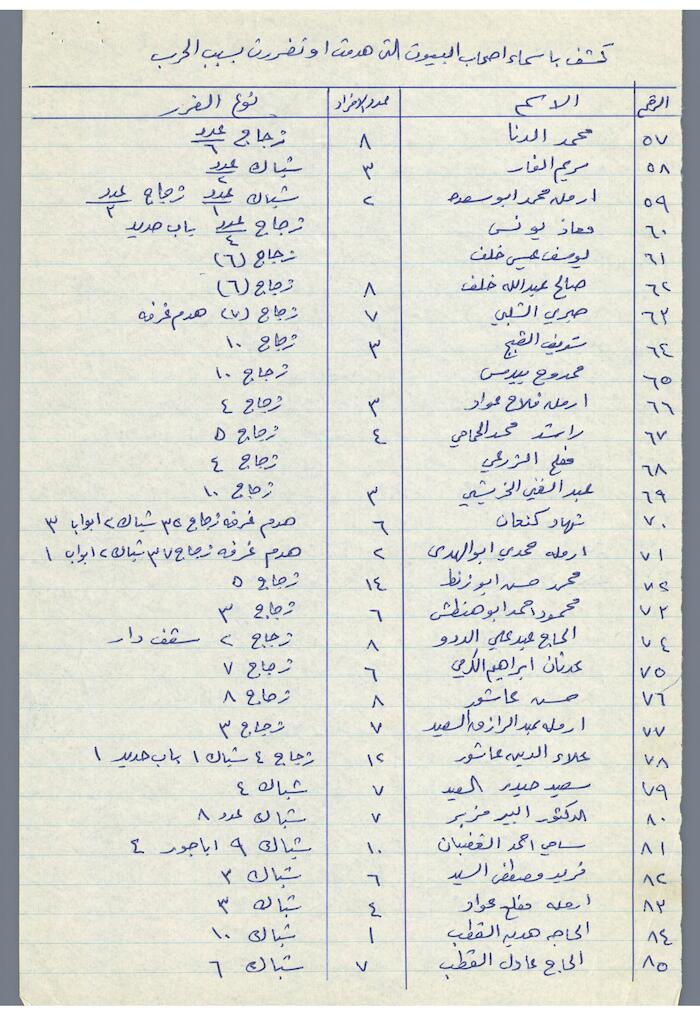 كشف باسماء اصحاب البيوت التي هدمت او تضررت بسبب الحرب
الرقم الاسم عدد الافراد نوع الضرر
٥٧ محمد الدنا ٨ زجاج عدد ٦
٥٨ مريم الفار ٣ شباك عدد ٢
٥٩ ارمله محمد ابو سعده ٢ شباك عدد ١ زجاج عدد ٣
٦٠ معاذ يونس زجاج عدد ٤ باب حديد
٦١ يوسف عيسى خلف زجاج (٦)
٦٢ صالح عبدالله خلف ٨ زجاج (٦)
٦٣ صبري الشلبي ٧ زجاج (٧) هدم غرفه
٦٤ القبج ٣ زجاج ١٠
٦٥ ممدوح بيدس زجاج ١٠
٦٦ ارمله فلاح عواد ٣ زجاج ٤
٦٧ راشد محمد ٤ زجاج ٥
٦٨ مفلح الزرعي زجاج ٤
٦٩ عبد الغني ٣ زجاج ١٠
٧٠ نهاد كنعان ٦ هدم غرفه زجاج ٣٢ شباك ٢ ابواب ٣
٧١ ارمله حمدي ابو الهدى ٢ هدم غرفه زجاج ٣٧ شباك ٢ ابواب ١
٧٢ محمد حسن ابو زنط ١٤ زجاج ٥
٧٣ محمود احمد ابو هنطش ٦ زجاج ٣
٧٤ الحاج عبد علي الددو ٨ زجاج ٢ سقف دار
٧٥ عدنان ابراهيم الكرمي ٦ زجاج ٧
٧٦ حسن عاشور ٨ زجاج ٨
٧٧ ارمله عبد الرازق السعيد ٧ زجاج ٣
٧٨ علاء الدين عاشور ١٢ زجاج ٤ شباك ١ باب حديد ١
٧٩ سعيد حيدر السعيد ٧ شباك ٤
٨٠ الدكتور البير مزبر ٧ شباك عدد ٨
٨١ سامي احمد الغضبان ١٠ شباك ٩ اباجور ٤
٨٢ فريد مصطفى السيد ٦ شباك ٣
٨٣ ارمله مفلح عواد ٤ شباك ٣
٨٤ الحاجه هديه القطب ١ شباك ١٠
٨٥ الحاج عادل القطب ٧ شباك ٦